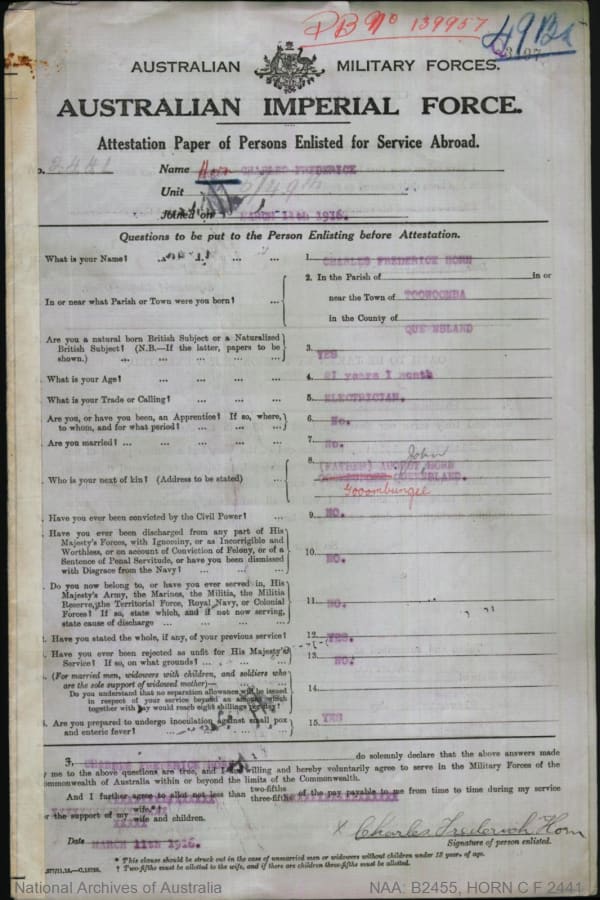 PB No 139957
49 Bn
AUSTRALIAN MILITARY FORCES.
AUSTRALIAN IMPERIAL FORCE.
Attestation Paper of Persons Enlisted for Service Abroad.
o. 2441 Name Horn CHARLES FREDERICK
Unit 49th
Joined on MARCH 11th 1916.
Questions to be put to the Person Enlisting before Attestation.
What is your Name? ... ... 1. CHARLES FREDERICK HORN
In or near what Parish or Town were you born? ... 2. In the Parish of in or
near the Town of TOOWOOMBA
in the County of QUE NSLAND
Are you a natural born British Subject or a Naturalized
British Subject? (N.B.—If the latter, papers to be
shown.) ... ... ... ... 3. YES
What is your Age? ... ... ... 4. 21 years 1 month
What is your Trade or Calling? ... ... ... 5. ELECTRICIAN.
Are you, or have you been, an Apprentice? If so, where,
to whom, and for what period? ... ... ... 6. No.
Are you married? ... ... ... ... 7. No.
Who is your next of kin? (Address to be stated) ... 8. (FATHER) AUGUST John HORN
QUEENSLAND.
Gooombungee
. Have you ever been convicted by the Civil Power? ... 9. NO.
. Have you ever been discharged from any part of His
Majesty's Forces, with Ignominy, or as Incorrigible and
Worthless, or on account of Conviction of Felony, or of a
Sentence of Penal Servitude, or have you been dismissed
with Disgrace from the Navy? ... ... ... 10. NO.
. Do you now belong to, or have you ever served in, His
Majesty's Army, the Marines, the Militia, the Militia
Reserve, the Territorial Force, Royal Navy, or Colonial
Forces? If so, state which, and if not now serving,
state cause of discharge ... ... ... ... 11. NO.
2. Have you stated the whole, if any, of your previous service? 12. YES.
. Have you ever been rejected as unfit for His Majesty's
Service? If so, on what grounds? ... ... ... 13. NO.
. (For married men, widowers with children, and soldiers who
are the sole support of widowed mother)—
Do you understand that no separation allowance will be issued
in respect of your service beyond an amount which
together with pay would reach eight shillings per day? 14.
5. Are you prepared to undergo inoculation against small pox
and enteric fever? ... ... ... ... 15. YES
I, CHARLES FREDERICK HORN do solemnly declare that the above answers made
y me to the above questions are true, and I am willing and hereby voluntarily agree to serve in the Military Forces of the
ommonwealth of Australia within or beyond the limits of the Commonwealth.
And I further agree to allot not less than two-fifths three-fifths of the pay payable to me from time to time during my service
r the support of my wife.* wife and children.
Date MARCH 11th 1916. x Charles Frederick Horn
Signature of person enlisted.
* This clause should be struck out in the case of unmarried men or widowers without children under 18 years of age.
† Two-fifths must be allotted to the wife, and if there are children three-fifths must be allotted.
National Archives of Australia NAA: B2455, HORN C F 2441